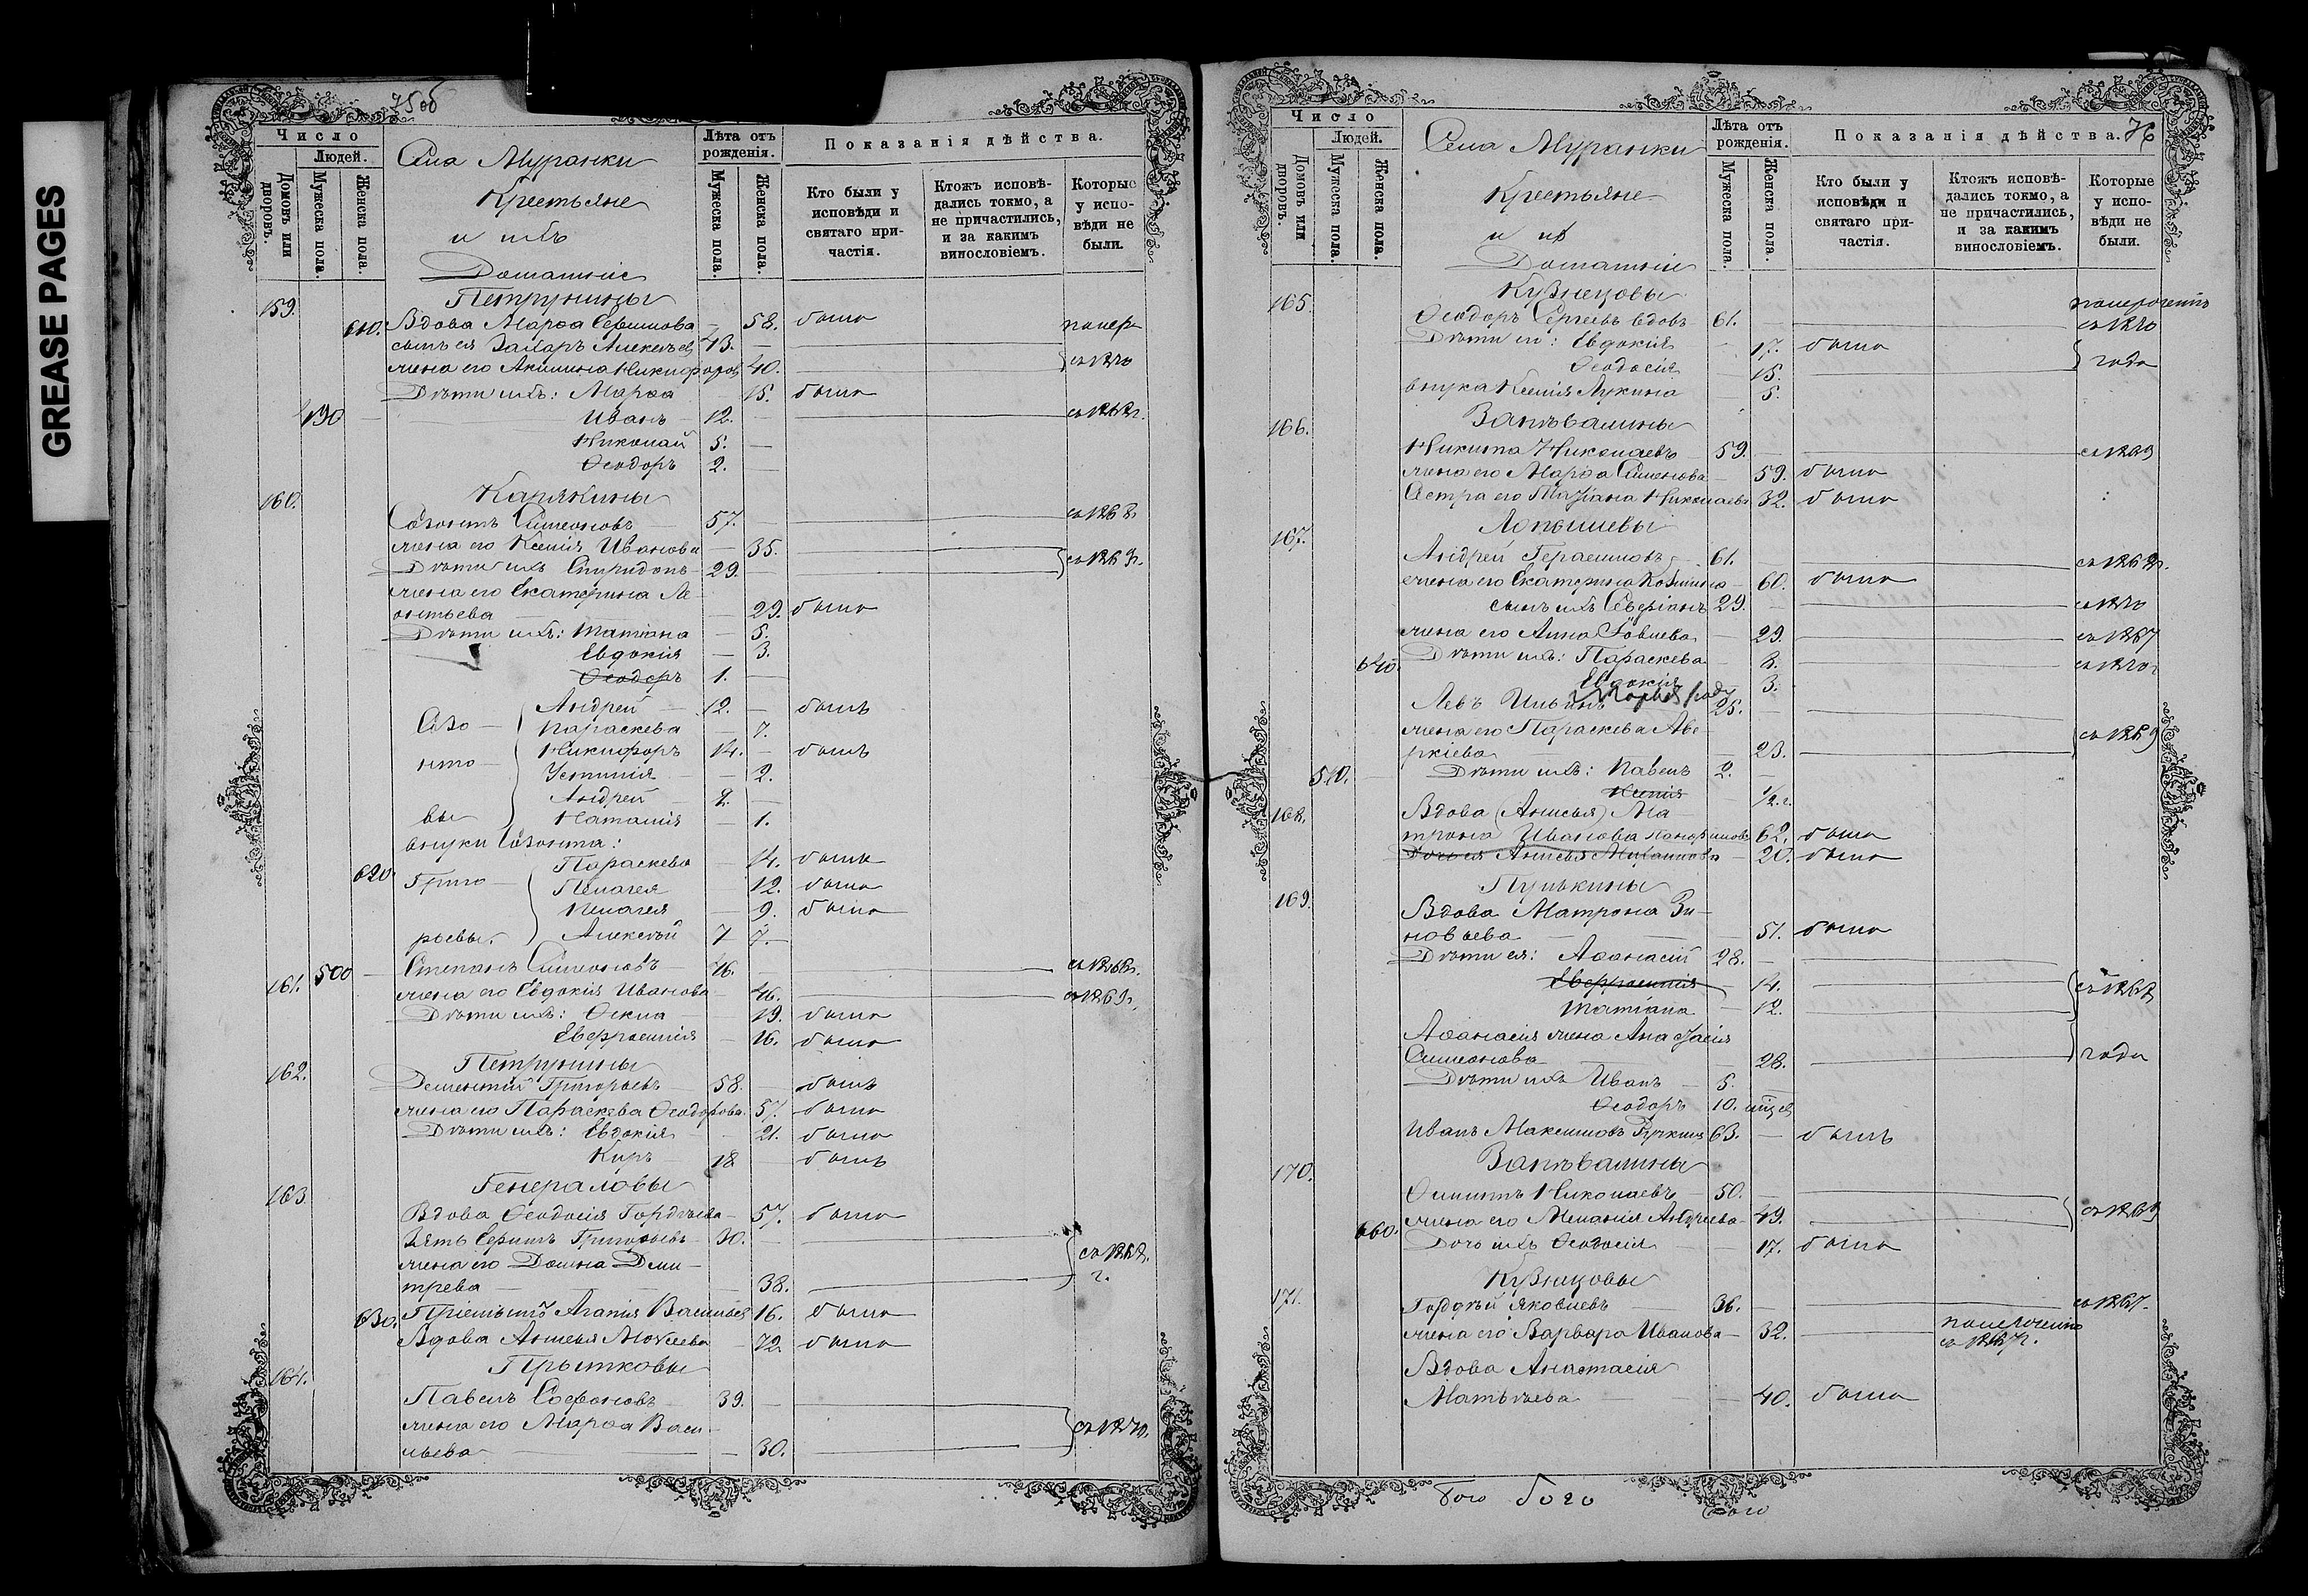 GREASE PAGES
75 об
Число
Людей.
Домовъ или дворовъ.
Мужеска пола.
Женска пола.
Села Муранки
Крестьяне
и ихъ
Домашніе
Лѣта отъ рожденія.
Мужеска пола.
Женска пола.
Показанія дѣйства.
Кто были у исповѣди и святаго причастія.
Ктожъ исповѣдались токмо, а не причастились, и за какимъ винословіемъ.
Которые у исповѣди не были.
159. Петрунины
610. Вдова Марѳа Сергѣева 58. была
сынъ ея Захаръ Алексѣевъ 43.
жена его Акилина Никифорова 40. съ 1870
Дѣти ихъ: Марѳа 15. была
490 Иванъ 12.
Николай 5.
Ѳеодоръ 2.
160. Карякины
Созонтъ Симеоновъ 57. съ 1868.
жена его Ксенія Иванова 35.
Дѣти ихъ Спиридонъ 29.
жена его Екатерина Ле-
онтьева 29. была
Дѣти ихъ: Татіана 5.
Евдокія 3.
Ѳеодоръ 1.
Андрей 12. былъ
Созо- Параскева 7.
Никифоръ 14. былъ
нто- Устинія 2.
Андрей
вы Наталія 1.
внуки Созонта:
620. Параскева 14. была
Григо- Пелагея 12. была
Пелагея 9. была
рьевы. Алексѣй 7 7.
161. 500 Степанъ Симеоновъ 46.
жена его Евдокія Иванова 46. съ 1869г.
Дѣти ихъ: Ѳекла 19. была
Евфросинія 16. была
162. Петрунины
Дементій Григорьевъ 58. былъ
жена его Параскева Ѳеодорова 57. была
Дѣти ихъ: Евдокія 21. была
Киръ 18 былъ
163. Генераловы
Вдова Ѳеодосія Гордѣева 57. была
Зять Сергѣй Григорьевъ 30.
жена его Домна Дми-
трева 38.
630. Пріемышъ Агапія Васильева 16. была
Вдова Анисья Моисеева 72. была
164. Прытковы
Павелъ Софоновъ 39.
жена его Марѳа Васи-
льева 30. съ 1870.
76
Число
Людей.
Домовъ или дворовъ.
Мужеска пола.
Женска пола.
Села Муранки
Крестьяне
и ихъ
Домашніи
Лѣта отъ рожденія.
Мужеска пола.
Женска пола.
Показанія дѣйства.
Кто были у исповѣди и святаго причастія.
Ктожъ исповѣдались токмо, а не причастились, и за какимъ винословіемъ.
Которые у исповѣди не были.
165. Кузнецовы
Ѳеодоръ Сергѣевъ вдовъ 61. съ 1870
Дѣти его: Евдокія 17. была
Ѳеодосія 15. года
внука Ксенія Лукина 5.
166. Запѣвалины
Никита Николаевъ 59. съ 1869
жена его Марѳа Симеонова 59. была
Сестра его Татіана Николаева 32. была
167. Лопышевы
Андрей Герасимовъ 61.
жена его Екатерина Козмина 60. была
сынъ ихъ Северіанъ 29. съ 1870
жена его Анна 29. съ 1867
640. Дѣти ихъ: Параскева 8. съ 1870
Евдокія 3.
Левъ Ильинъ 25.
жена его Параскева Аве-
ркіева 23. съ 1869
510. Дѣти ихъ: Павелъ 2.
Ксенія 1/2 г.
168. Вдова (Анисья) Ма-
трона Иванова 62. была
Дочь ея Анисья Михайлова 20. была
169. Пулькины
Вдова Матрона Зи-
новьева 51. была
Дѣти ея: Аѳанасій 28.
Евфросинія 14.
Татіана 12.
Аѳанасія жена Анастасія
Симеонова 28. года
Дѣти ихъ Иванъ 5.
Ѳеодоръ 10.
Иванъ Максимовъ 63. былъ
170. Запѣвалины
Филиппъ Николаевъ 50.
660. жена его Меланія Андреева 49. съ 1869
Дочь ихъ Ѳеодосія 17. была
171. Кузнецовы
Гордѣй Яковлевъ 36. съ 1867.
жена его Варвара Иванова 32.
Вдова Анастасія
Матвѣева 40. была